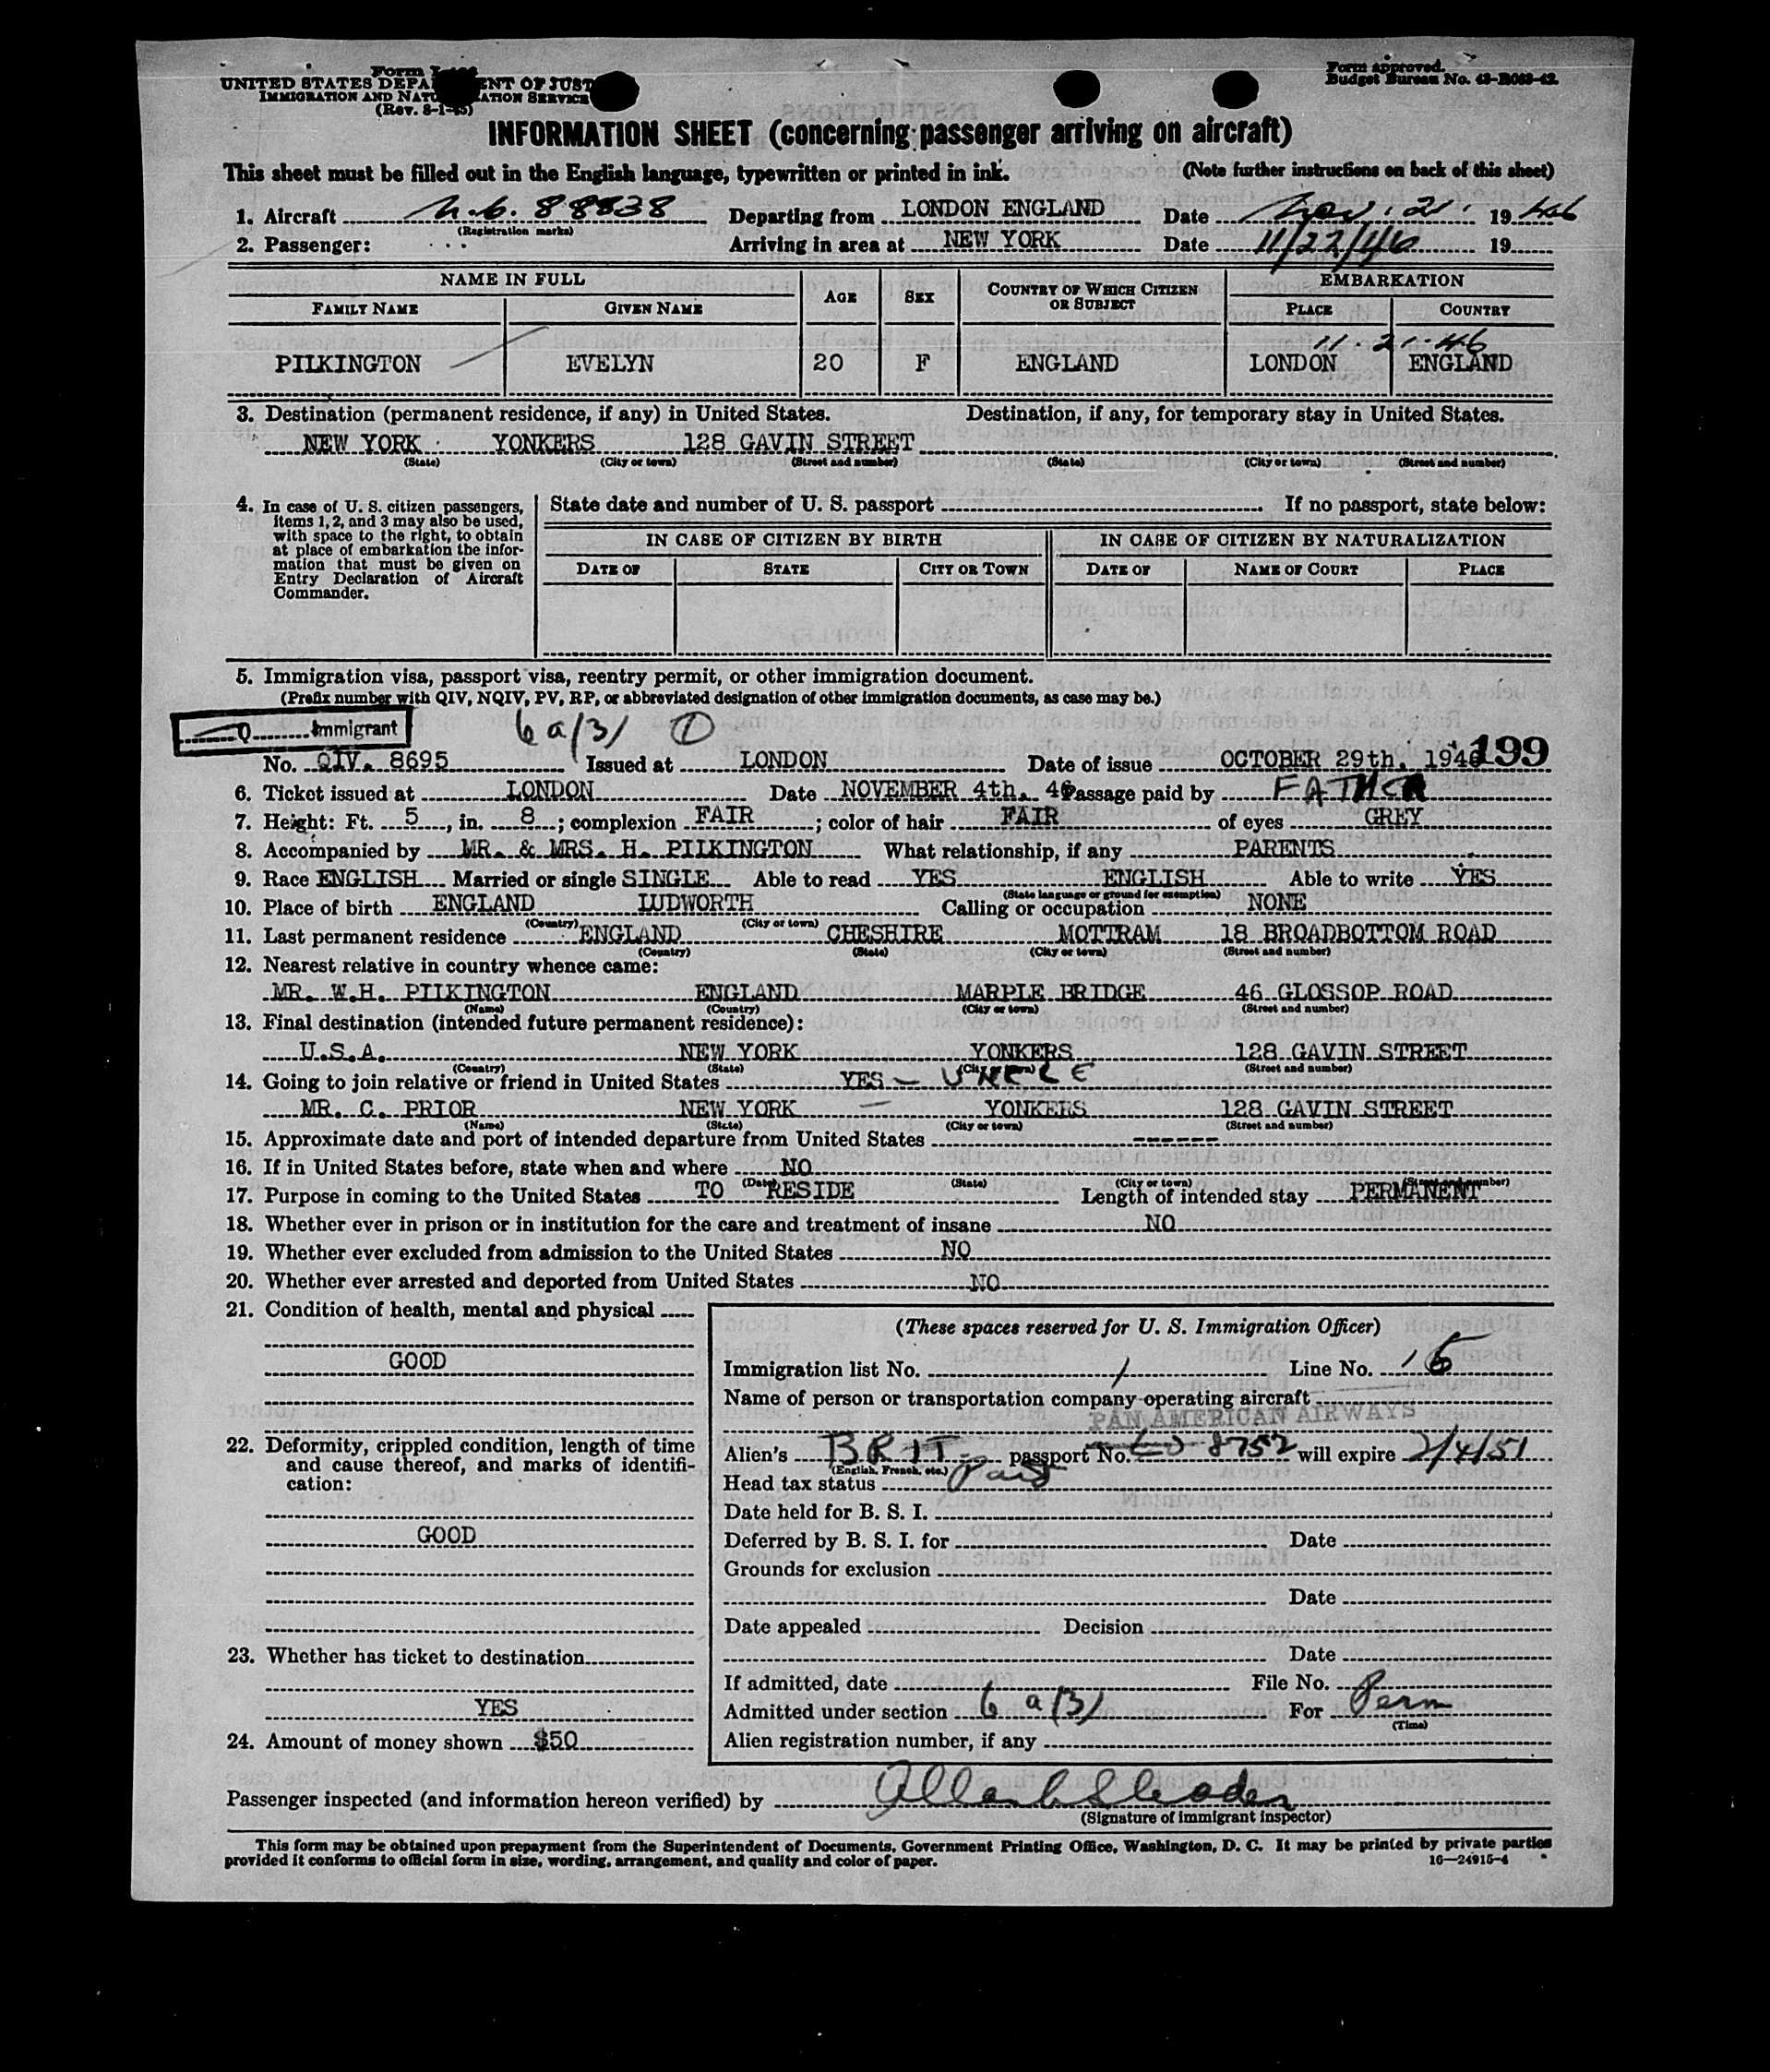 UNITED STATES DEPA ENT OF JUST
IMMIGRATION AND NATU ATION SERVICE
(Rev. 8-1-45)
Form approved.
Budget Bureau No. 43-R063-42.
INFORMATION SHEET (concerning passenger arriving on aircraft)
This sheet must be filled out in the English language, typewritten or printed in ink. (Note further instructions on back of this sheet)
1. Aircraft 88838 Departing from LONDON ENGLAND Date Nov. 21. 19 46
(Registration marks)
2. Passenger: Arriving in area at NEW YORK Date 11/22/46 19
NAME IN FULL AGE SEX COUNTRY OF WHICH CITIZEN OR SUBJECT EMBARKATION
FAMILY NAME GIVEN NAME PLACE COUNTRY
11.21.46
PILKINGTON EVELYN 20 F ENGLAND LONDON ENGLAND
3. Destination (permanent residence, if any) in United States. Destination, if any, for temporary stay in United States.
NEW YORK YONKERS 128 GAVIN STREET
(State) (City or town) (Street and number) (State) (City or town) (Street and number)
4. In case of U. S. citizen passengers,
items 1, 2, and 3 may also be used,
with space to the right, to obtain
at place of embarkation the infor-
mation that must be given on
Entry Declaration of Aircraft
Commander.
State date and number of U. S. passport If no passport, state below:
IN CASE OF CITIZEN BY BIRTH IN CASE OF CITIZEN BY NATURALIZATION
DATE OF STATE CITY OR TOWN DATE OF NAME OF COURT PLACE
5. Immigration visa, passport visa, reentry permit, or other immigration document.
(Prefix number with QIV, NQIV, PV, RP, or abbreviated designation of other immigration documents, as case may be.)
Q Immigrant 6 a(3) 1
No. QIV. 8695 Issued at LONDON Date of issue OCTOBER 29th, 1946 199
6. Ticket issued at LONDON Date NOVEMBER 4th. 46 Passage paid by FATHER
7. Height: Ft. 5, in. 8; complexion FAIR; color of hair FAIR of eyes GREY
8. Accompanied by MR. & MRS. H. PILKINGTON What relationship, if any PARENTS
9. Race ENGLISH Married or single SINGLE Able to read YES ENGLISH Able to write YES
(State language or ground for exemption)
10. Place of birth ENGLAND LUDWORTH Calling or occupation NONE
(Country) (City or town)
11. Last permanent residence ENGLAND CHESHIRE MOTTRAM 18 BROADBOTTOM ROAD
(Country) (State) (City or town) (Street and number)
12. Nearest relative in country whence came:
MR. W.H. PILKINGTON ENGLAND MARPLE BRIDGE 46 GLOSSOP ROAD
(Name) (Country) (City or town) (Street and number)
13. Final destination (intended future permanent residence):
U.S.A. NEW YORK YONKERS 128 GAVIN STREET
(Country) (State) (City or town) (Street and number)
14. Going to join relative or friend in United States YES - UNCLE
MR. C. PRIOR NEW YORK YONKERS 128 GAVIN STREET
(Name) (State) (City or town) (Street and number)
15. Approximate date and port of intended departure from United States ------
16. If in United States before, state when and where NO
(Date) (State) (City or town) (Street and number)
17. Purpose in coming to the United States TO RESIDE Length of intended stay PERMANENT
18. Whether ever in prison or in institution for the care and treatment of insane NO
19. Whether ever excluded from admission to the United States NO
20. Whether ever arrested and deported from United States NO
21. Condition of health, mental and physical
GOOD
22. Deformity, crippled condition, length of time
and cause thereof, and marks of identifi-
cation:
GOOD
23. Whether has ticket to destination
YES
24. Amount of money shown $50
(These spaces reserved for U. S. Immigration Officer)
Immigration list No. 1 Line No. 15
Name of person or transportation company operating aircraft
PAN AMERICAN AIRWAYS
Alien's BRIT. passport No. 8752 will expire 2/4/51
(English, French, etc.)
Head tax status Paid
Date held for B. S. I.
Deferred by B. S. I. for Date
Grounds for exclusion
Date
Date appealed Decision
Date
If admitted, date File No.
Admitted under section 6 a(3) For Perm
(Time)
Alien registration number, if any
Passenger inspected (and information hereon verified) by
(Signature of immigrant inspector)
This form may be obtained upon prepayment from the Superintendent of Documents, Government Printing Office, Washington, D. C. It may be printed by private parties
provided it conforms to official form in size, wording, arrangement, and quality and color of paper. 16—24915-4